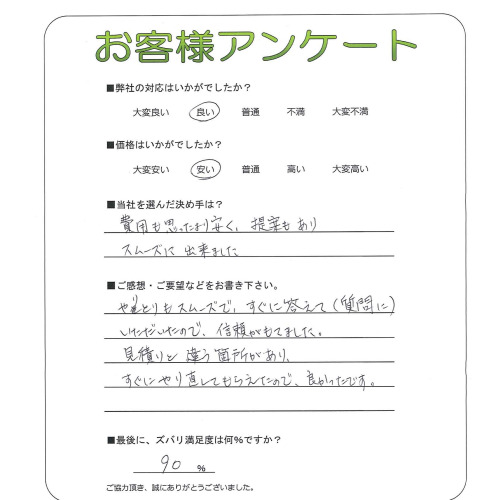 お客様アンケート
■弊社の対応はいかがでしたか?
大変良い 良い 普通 不満 大変不満
■価格はいかがでしたか?
大変安い 安い 普通 高い 大変高い
■当社を選んだ決め手は?
費用も思ったより安く、提案もあり
スムーズに出来ました
■ご感想・ご要望などをお書き下さい。
やりとりもスムーズで、すぐに答えて(質問に)
いただいたので、信頼がもてました。
見積りと違う箇所があり、
すぐにやり直してもらえたので、良かったです。
■最後に、ズバリ満足度は何%ですか?
90 %
ご協力頂き、誠にありがとうございました。